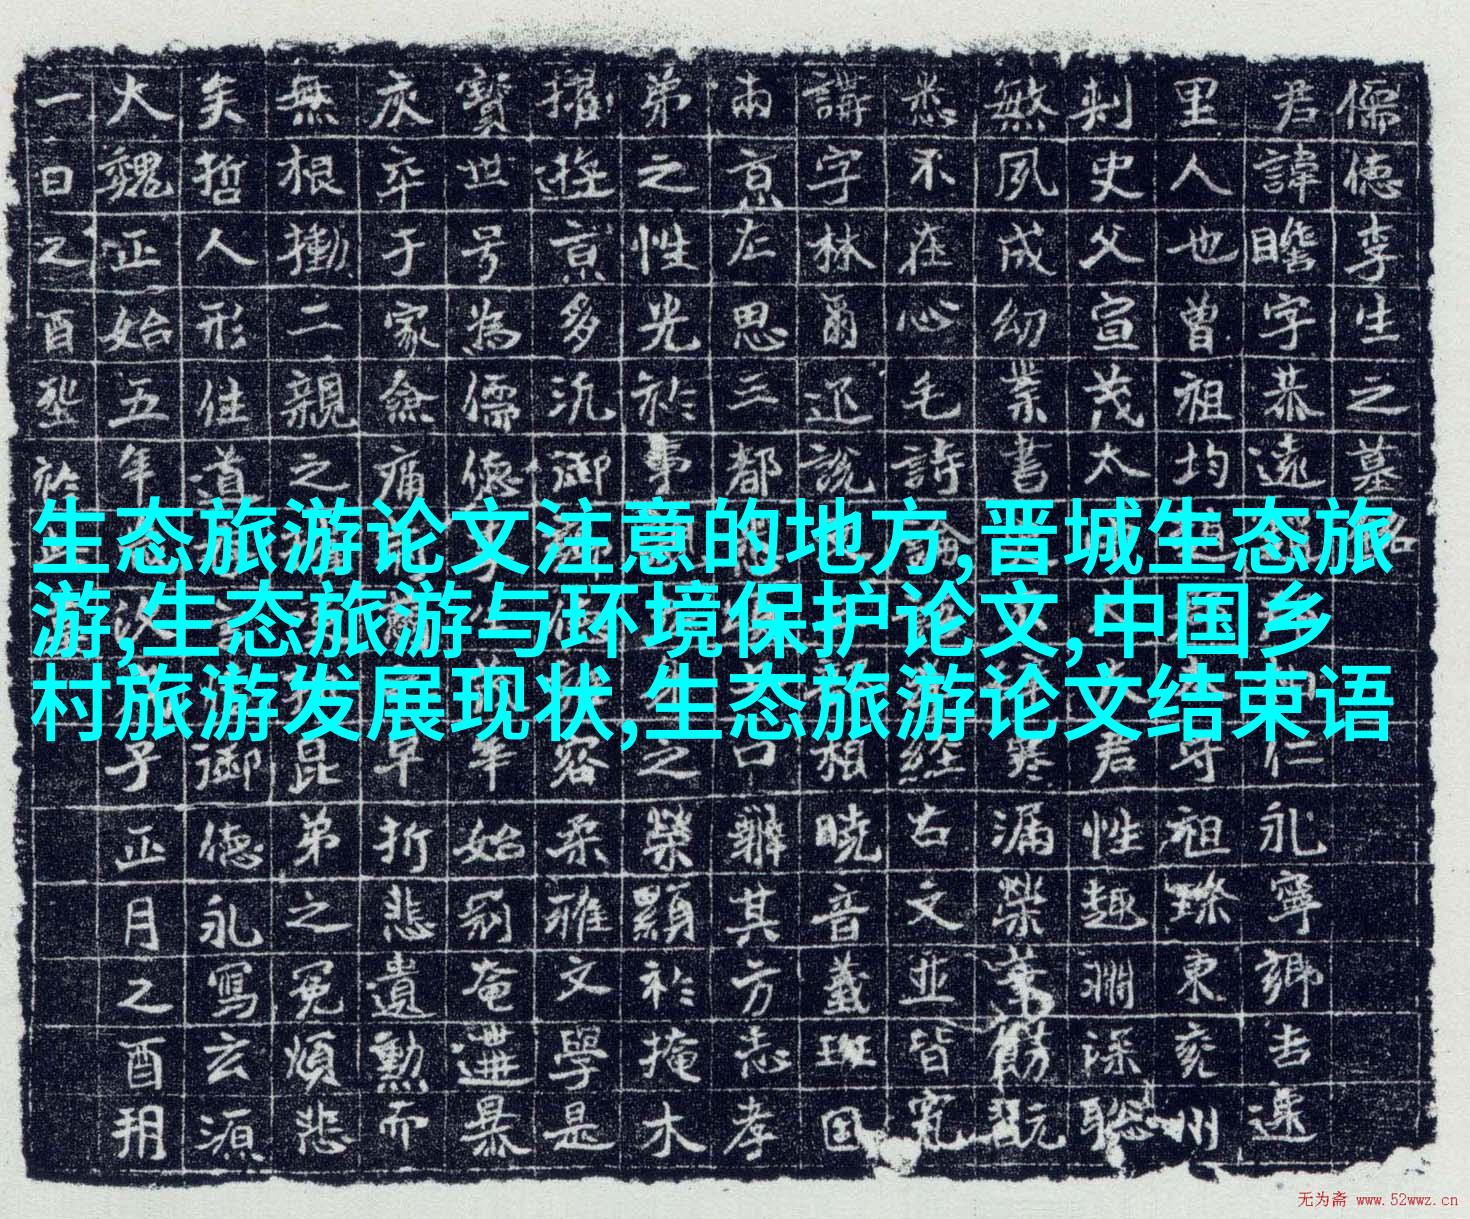 生态旅游论文注意的地方,晋城生态旅
游,生态旅游与环境保护论文,中国乡
村旅游发展现状,生态旅游论文结束语
儒德李生之墓銘
君諱瞻字恭遠仁永寧鄉吉遷
里人也曾祖均牙祖璨東兗州
刺史父宣茂太君性趣淵深聰
敏夙成幼業書寒漏縈翫
悉不在心毛詩論經古文並皆究
講字林爾迊說相曉音義班固
兩京左思三都口辭其方志孝
弟之性光於事之榮顯於掩木
擢遊京多沉御容柔雅文學是
寶世号為儒德年始弱奄遘暴
疾卒于家僉痛早折悲遺勲而
無根慟二親之昆弟之冤煩悲
矣哲人形住道御德礼寫玄源
大魏正始五年子正月之酉朔
一日之酉塟於
无为斋 www.52wwz.cn